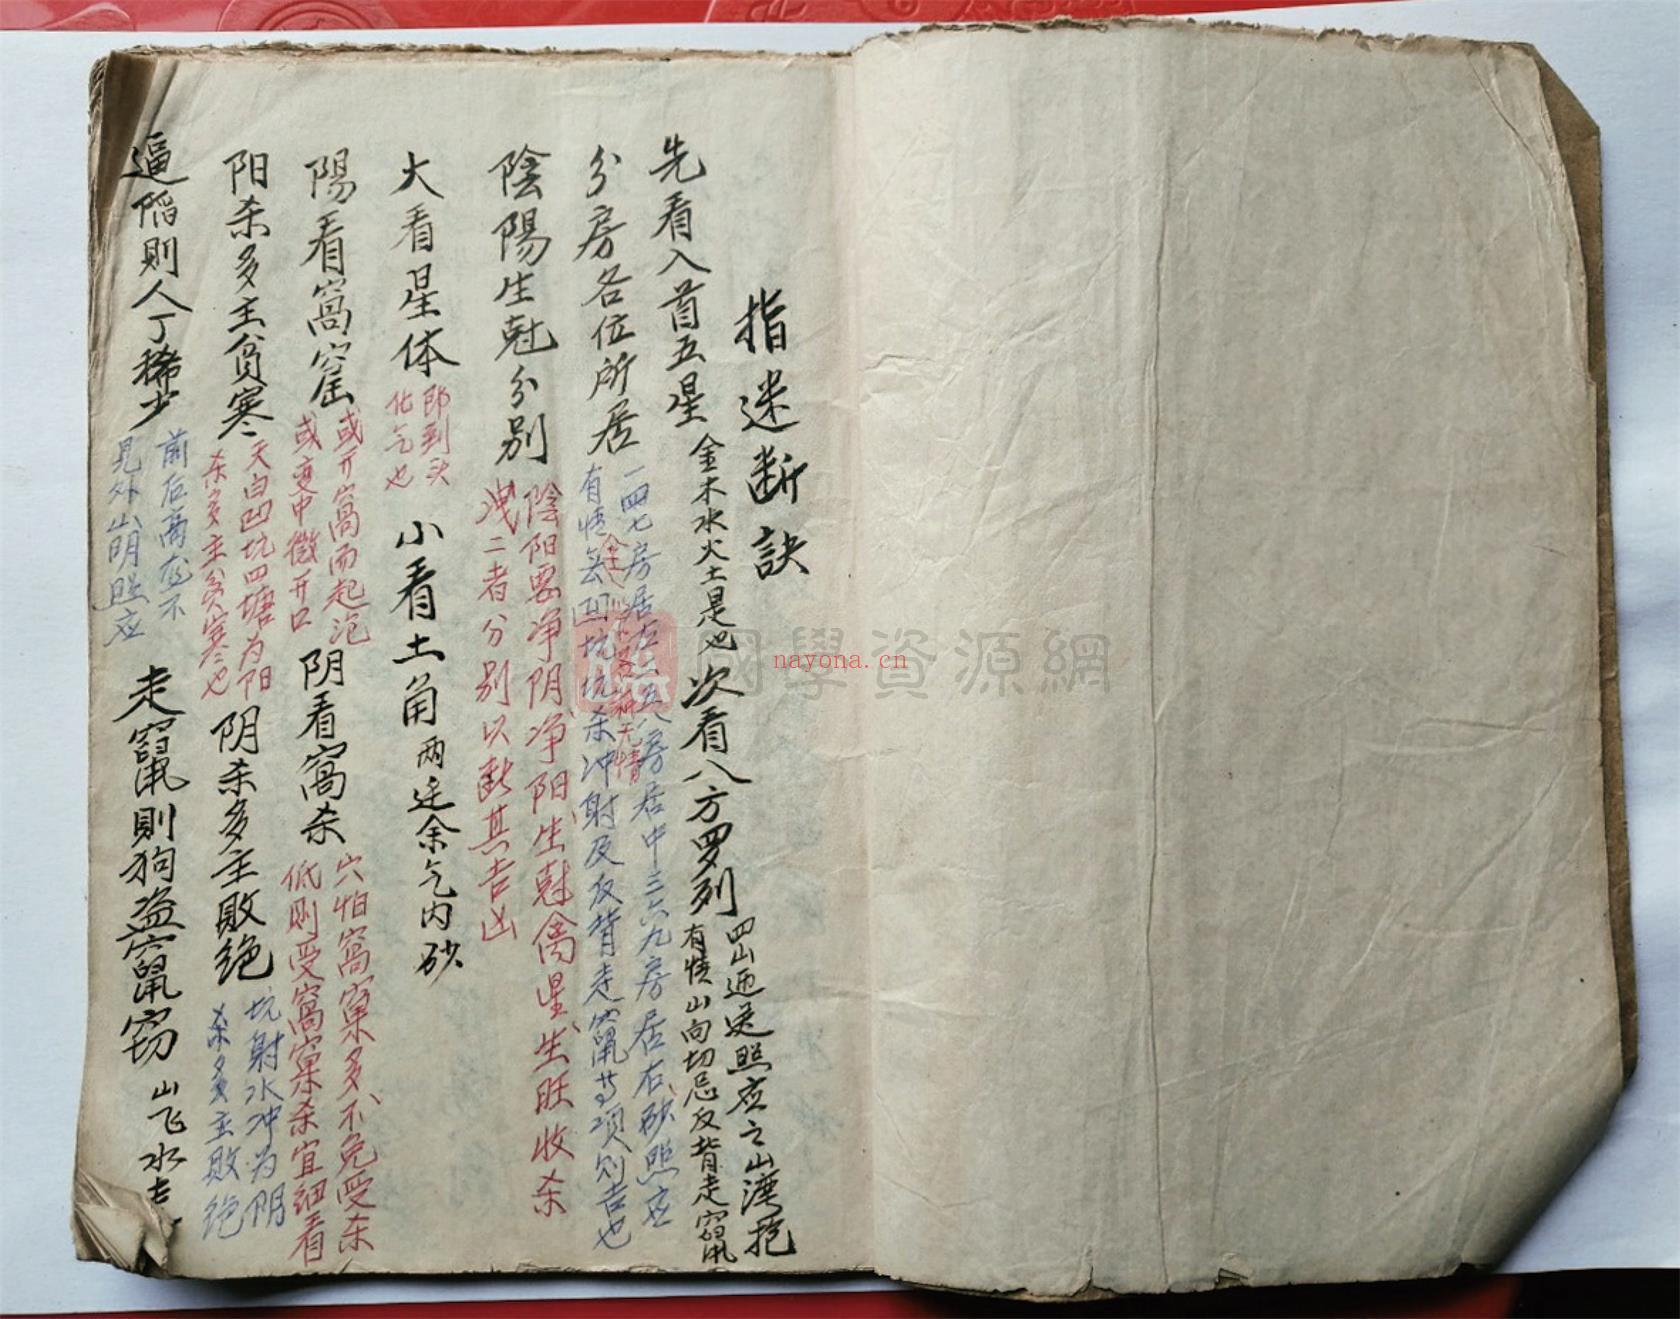 指迷断訣
先看入首五星
金木水火土是也
次看八方罗列
四山迎送照应之山湾抱
有情山向切忌反背走窜
分房各位所居
一四七房居左二五八房居中三六九房居右砂照应
有情無凹坑坑杀冲射及反背走窜等项则吉也
陰陽生尅分别
陰阳要净阴净阳生尅禽星生旺收杀
洩二者分别以断其吉凶
大看星体
即到头
化气也
小看土角
两边余气内砂
陽看窩窟
或开窩而起泡
或变中微开口
阴看窩杀
穴怕窩窠多不免受杀
低则受窩窠杀宜细看
阳杀多主貧寒
天白凹坑四塘为阳
杀多主贫寒也
阴杀多主敗绝
坑射水冲为阴
杀多主敗绝
逼陷則人丁稀少
前后高应不
見外山明照应
走竄則狗盗竄窃
山飞水走
國學資源網
nayona.cn